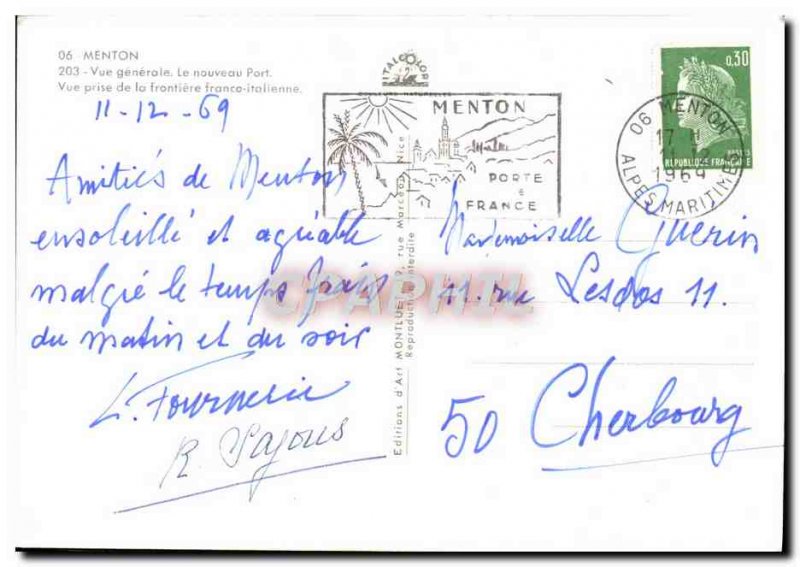 06 - MENTON
203 - Vue générale. Le nouveau Port.
Vue prise de la frontière franco-italienne.
11-12-69
Amitiés de Menton
ensoleillé et agréable
malgré le temps frais
du matin et du soir
L. Fournerie
R. Pajous
ITALCOLOR
MENTON
PORTE
FRANCE
0,30
RÉPUBLIQUE FRANÇAISE
06 MENTON
17 H
1969
ALPES MARITIMES
Editions d'Art MONTLUET, 9, rue Marceau, Nice
Reproduction interdite
Mademoiselle Guerin
11. rue 11.
50 Cherbourg
CPAPHIL